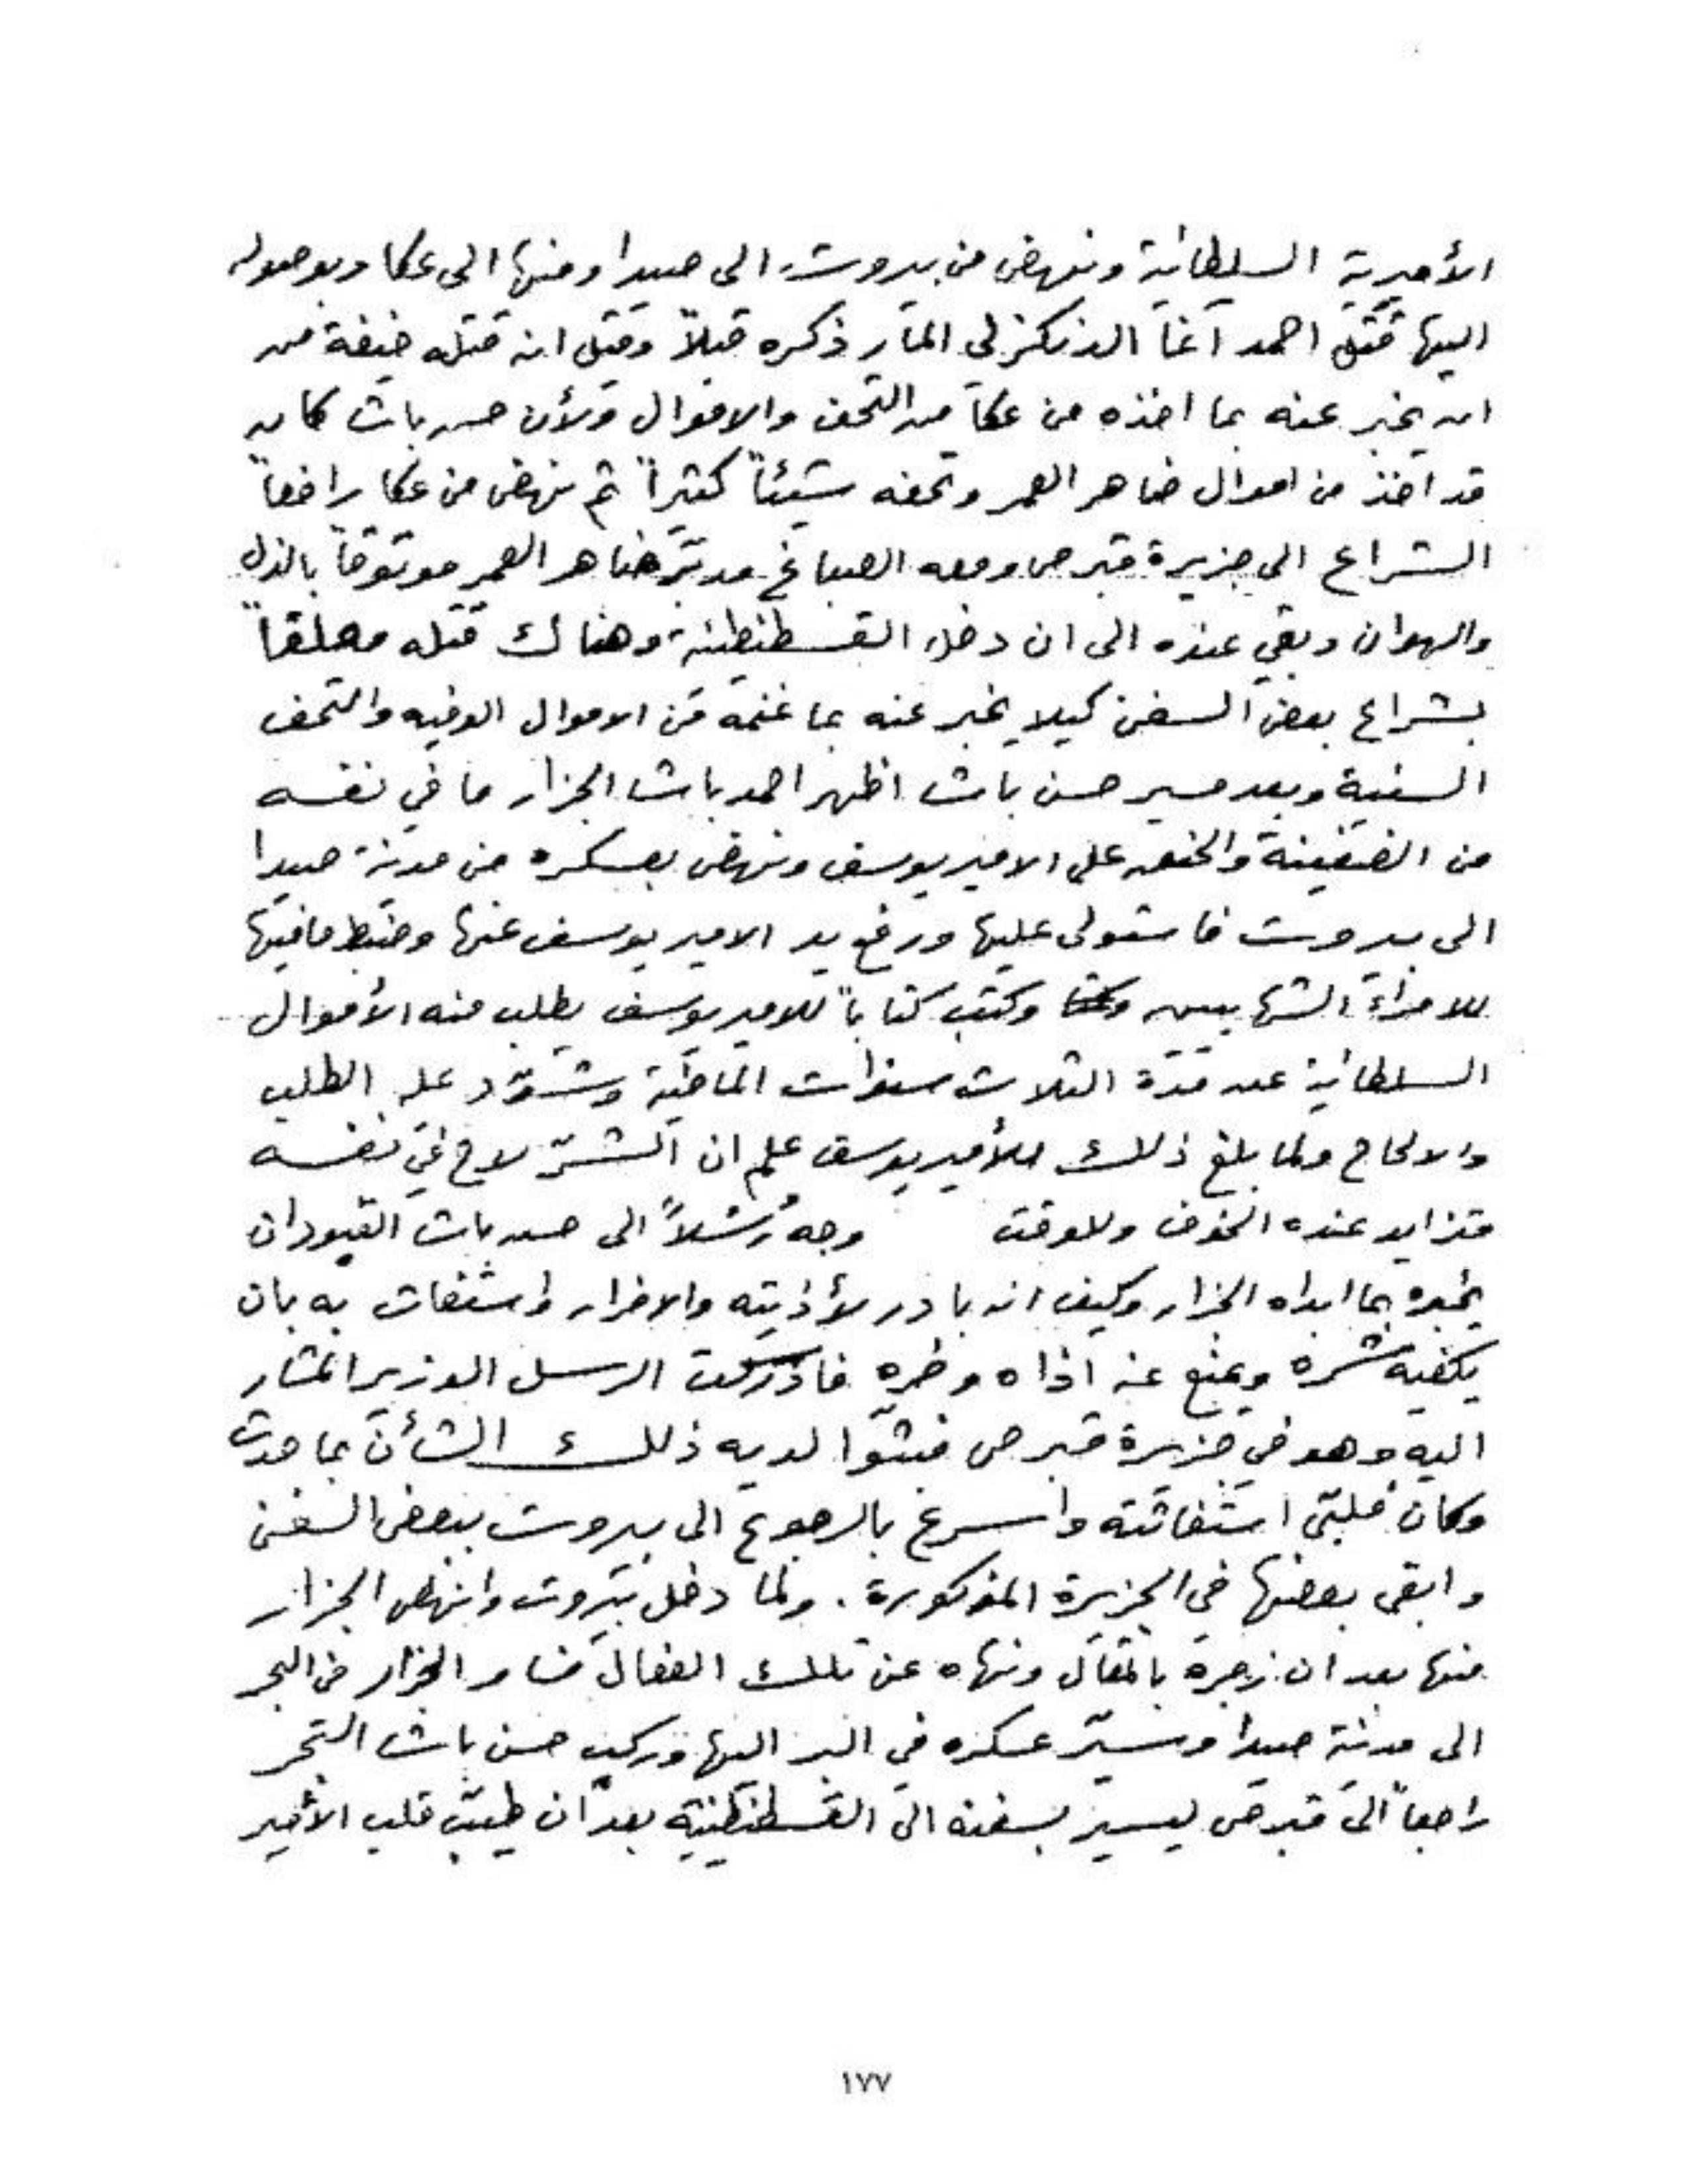 الأميرية السلطانية ونهض من بيروت الى صيدا ومنها الى عكا وبوصوله
اليها قتل احمد آغا الدنكزلي المار ذكره قبلاً وقيل انه قتله خيفة من
ان يخبر عنه بما اخذه من عكا من التحف والاموال ولأن حسن باشا كان
قد اخذ من اموال ضاهر العمر وتحفه شيئاً كثيراً ثم نهض من عكا رافعاً
الشراع الى جزيرة قبرص ومعه الصباغ مدبر ضاهر العمر موثوقاً بالذل
والهوان وبقي عنده الى ان دخل القسطنطينية وهناك قتله معلقاً
بشراع بعض السفن كيلا يخبر عنه بما غنمه من الاموال الوفيه والتحف
السنية وبعد مسير حسن باشا اظهر احمد باشا الجزار ما في نفسه
من الضغينة على الامير يوسف ونهض بعسكره من مدينة صيدا
الى بيروت فاستولى عليها ورفع يد الامير يوسف عنها وضبط ما فيها
للامراء الشهابيين وكتب كتاباً للامير يوسف يطلب منه الأموال
السلطانية عن مدة الثلاث سنوات الماضية وشدد عليه الطلب
والالحاح ولما بلغ ذلك للأمير يوسف علم ان الشر لاح في نفسه
فتزايد عنده الخوف وللوقت وجه رسلاً الى حسن باشا القبودان
يخبره بما ابداه الجزار وكيف انه بادر لأذيته والاضرار واستغاث به بان
يكفيه شره ويمنع عنه اذاه وضره فادركت الرسل الوزير المشار
اليه وهو في جزيرة قبرص فبثوا لديه ذلك الشأن بما حدث
وكان فلبى استغاثته واسرع بالرجوع الى بيروت ببعض السفن
وابقى بعضها في الجزيرة المذكورة. ولما دخل بيروت وانهض الجزار
منها بعد ان زجره بالمقال ونهاه عن تلك الفعال فسار الجزار في البحر
الى مدينة صيدا وسير عسكره في البر اليها وركب حسن باشا البحر
راجعاً الى قبرص ليسير بسفنه الى القسطنطينية بعد ان طيب قلب الأمير
١٧٧